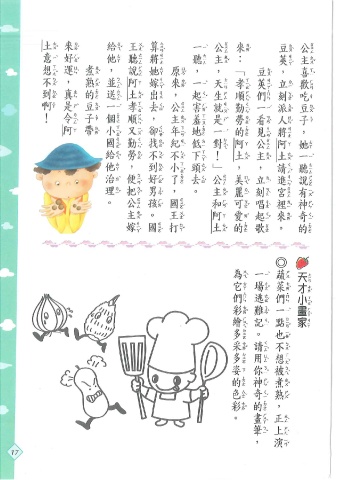 公主喜歡吃豆子，她一聽說有神奇的
豆莢，立刻派人將阿土請進宮裡來。
豆莢們一看見公主，立刻唱起歌
來：「孝順勤勞的阿土，美麗可愛的
公主，天生就是一對！」公主和阿土
一聽，一起害羞地低下頭去。
原來，公主年紀不小了，國王打
算將她嫁出去，卻找不到好男孩。國
王聽說阿土孝順又勤勞，便把公主嫁
給他，並送一個小國給他治理。
煮熟的豆子帶
來好運，真是令阿
土意想不到啊！
天才小畫家
◎蔬菜們一點也不想被煮熟，正上演
一場逃難記。請用你神奇的畫筆，
為它們彩繪多采多姿的色彩。
17